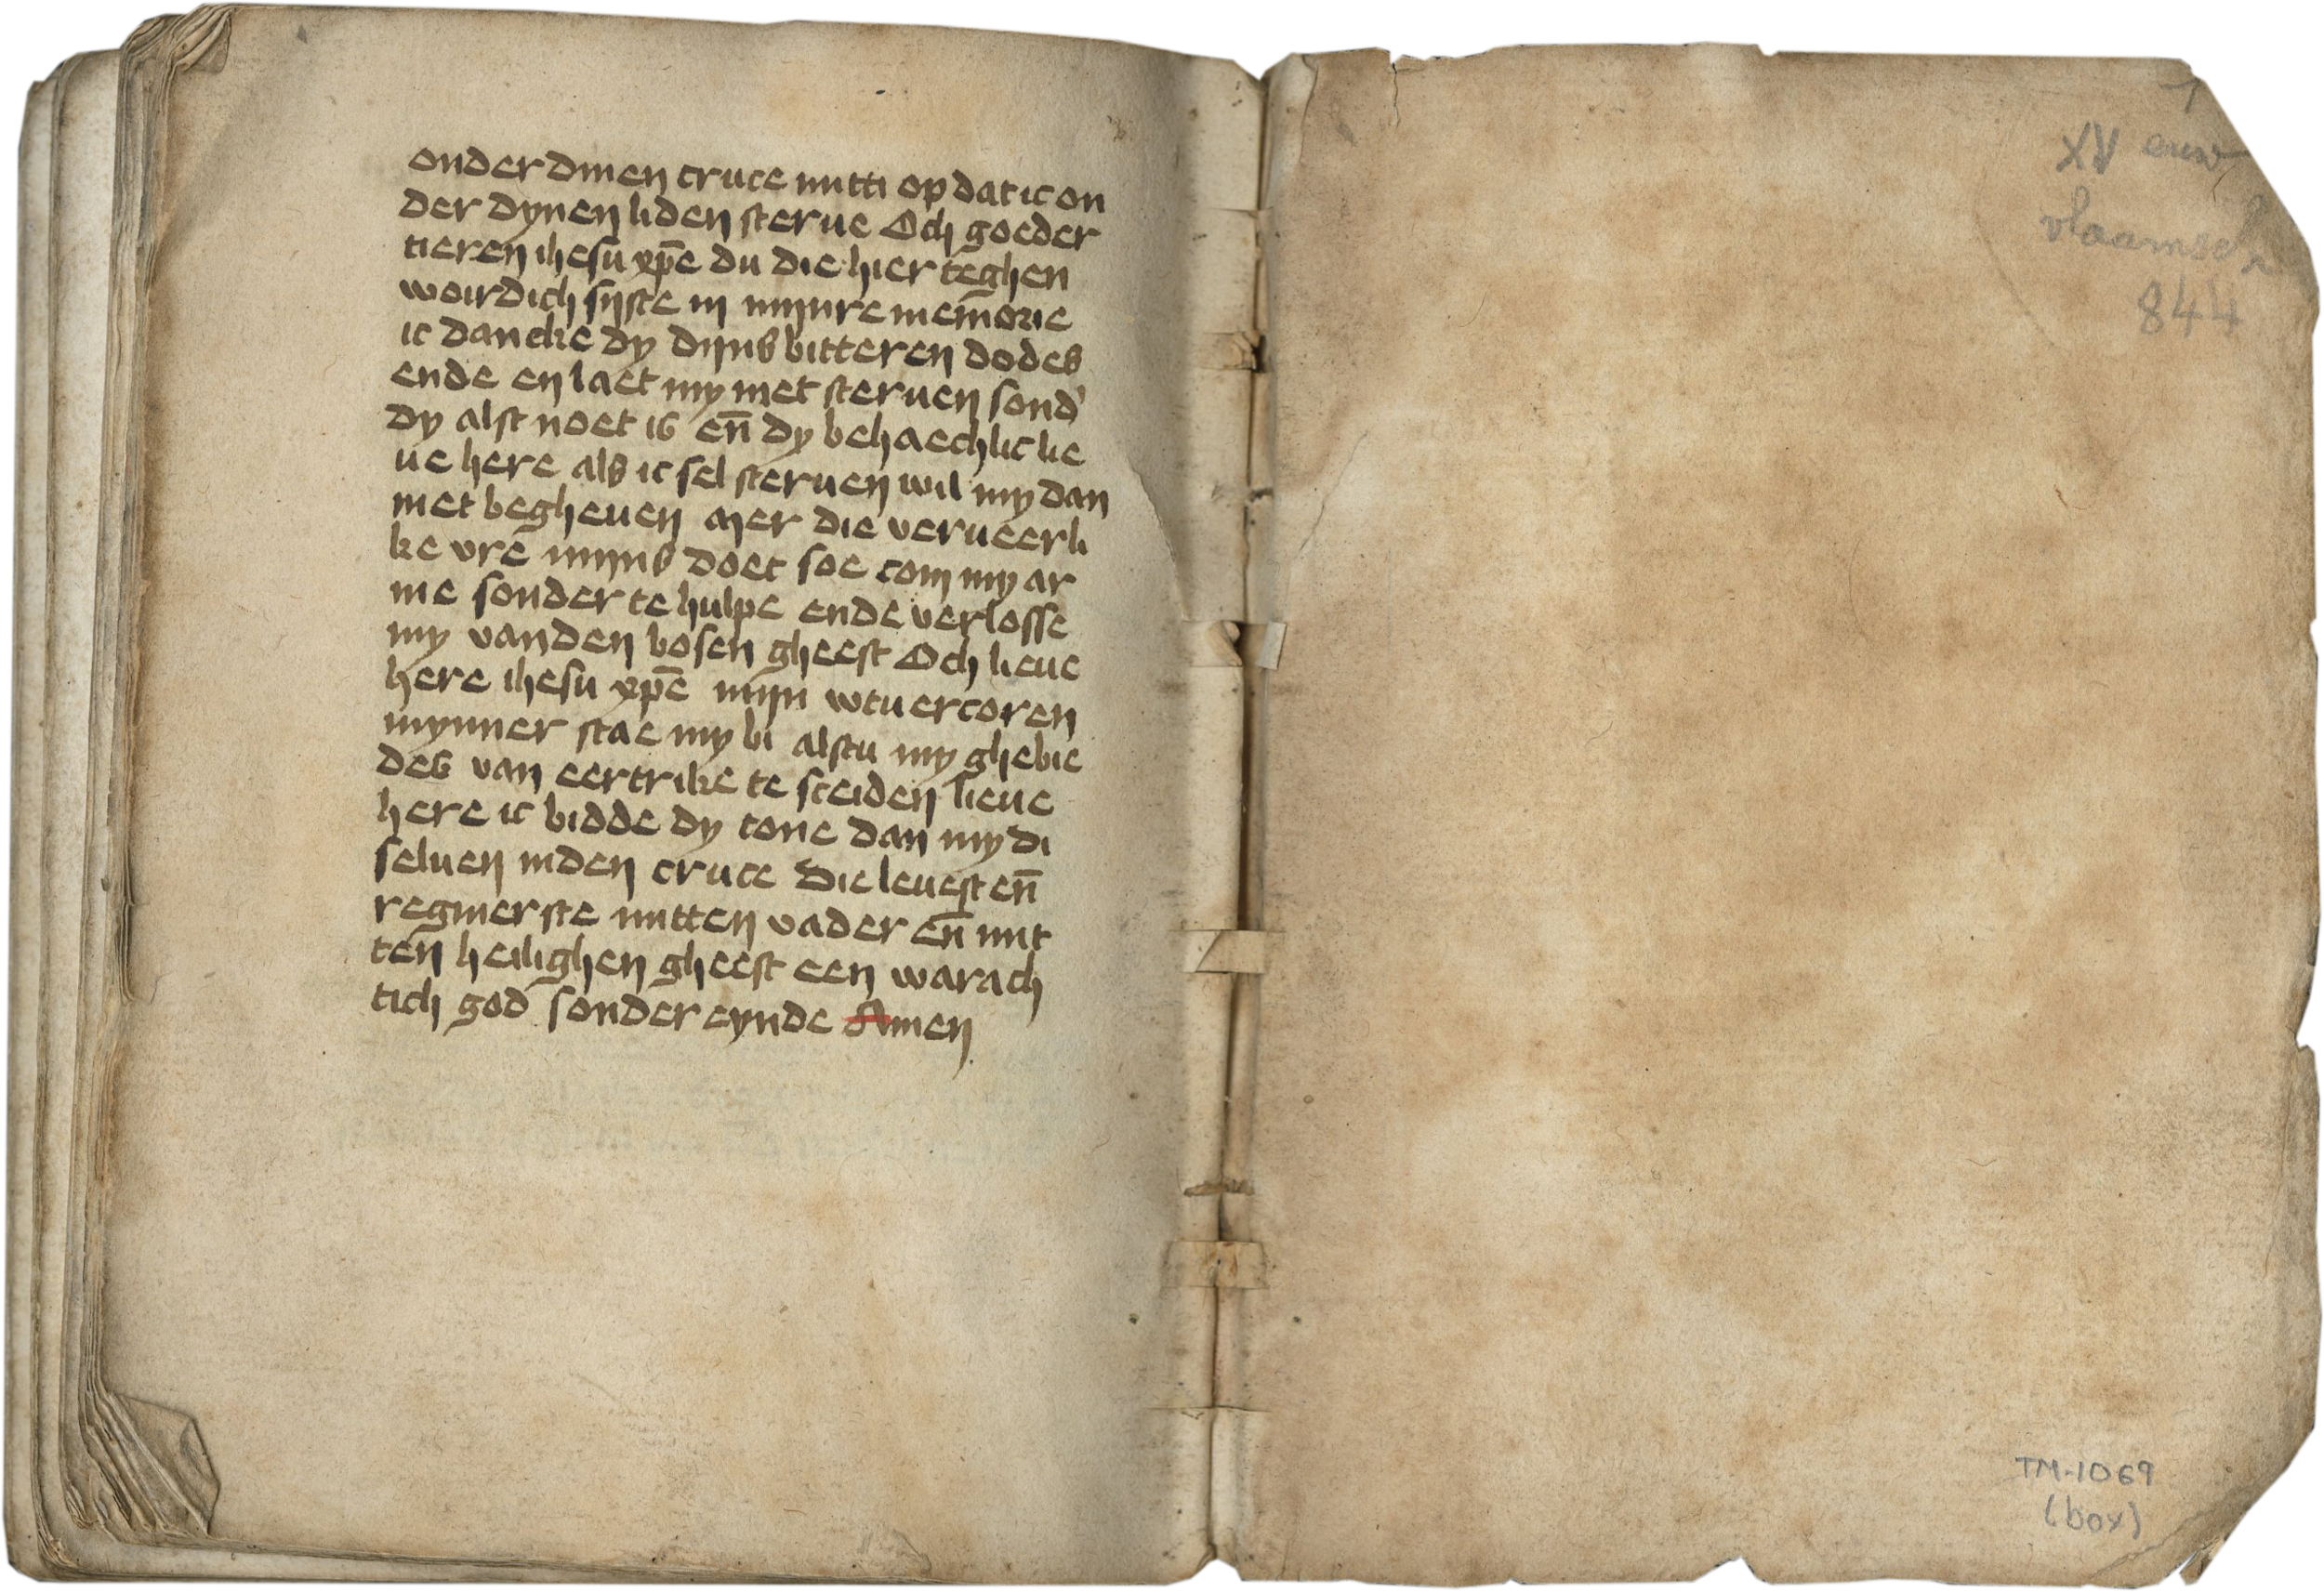 onder dinen cruce mitti op dat ic on
der dynen liden sterue Och goeder
tieren ihesu xp̄e du die hier teghen
woirdich sijste in mijnre mem̄orie
ic dancke dy dijns bitteren dodes
ende en laet my niet steruen sond'
dy alst noet is en̄ dy behaechlic lie
ue here als ic sel steruen wil my dan
niet begheuen mer die verueerli
ke vre mijns doet soe com my ar
me sonder te hulpe ende verlosse
my vanden bosen gheest Och lieue
here ihesu xp̄e mijn wtuercoren
mynner stae my bi alstu my ghebie
des van eertrike te sceiden lieue
here ic bidde dy tone dan my di
seluen inden cruce die leuest en̄
regnierste mitten vader en̄ mit
ten heilighen gheest een warach
tich god sonder eynde Amen
XV euw
vlaamsch
844
TM-1069
(box)